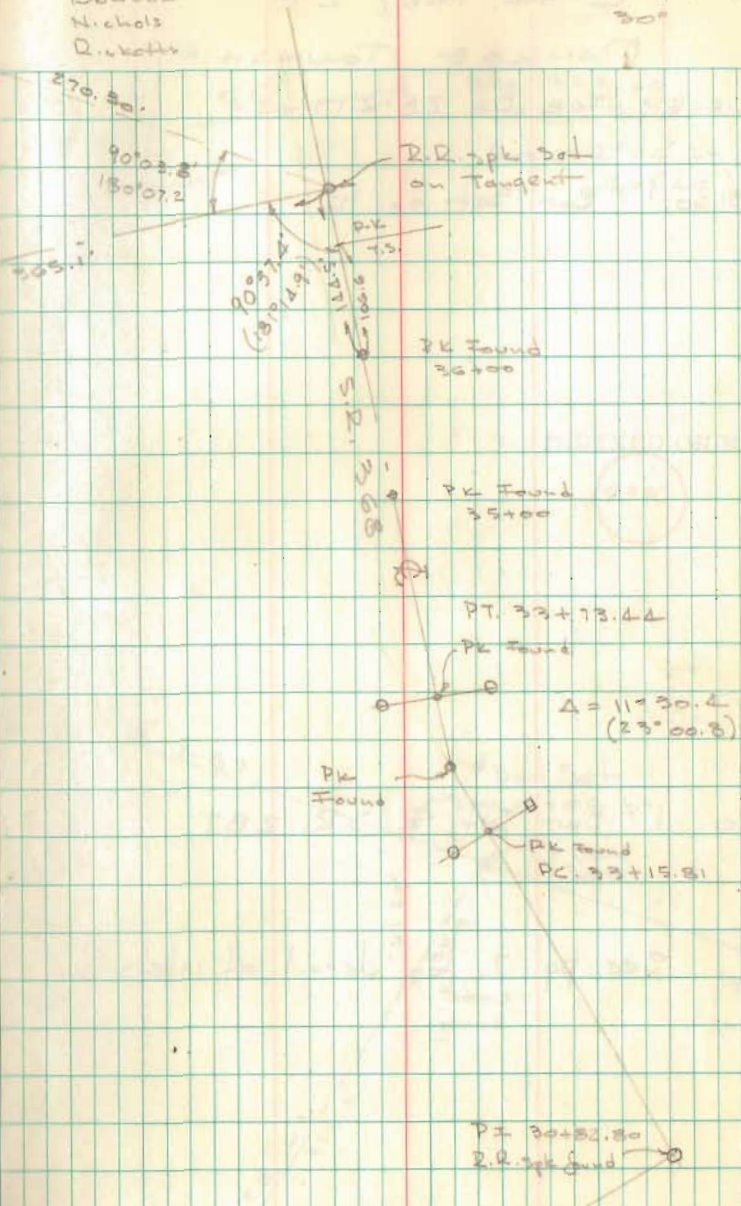 Nichols
Ricketts
30°
270.30.
90°03.8'
180°07.2
R.R. spk Set
on Tangent
P.K.
T.S.
365.1'
90°37.4'
(181°14.9')
PK Found
36+00
S.R. 368
PK Found
35+00
PT. 33+73.44
PK Found
Δ = 11°30.4
(23°00.8)
PK
Found
PK Found
PC. 33+15.81
PI 30+82.80
R.R. spk found